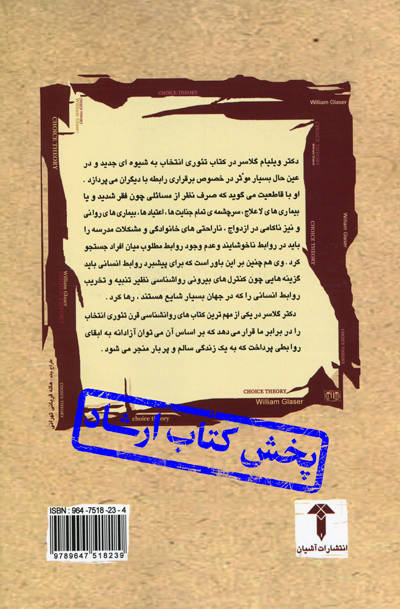 CHOICE THEORY
William Glaser
William Glaser
CHOICE THEORY
William Glaser
CHOICE THEORY
CHOICE THEORY
William Glaser
دکتر ویلیام گلاسر در کتاب تئوری انتخاب به شیوه ای جدید و در
عین حال بسیار موثر در خصوص برقراری رابطه با دیگران می پردازد .
او با قاطعیت می گوید که صرف نظر از مسائلی چون فقر شدید و یا
بیماری های لاعلاج ، سرچشمه ی تمام جنایت ها ، اعتیادها ، بیماری های روانی
و نیز ناکامی در ازدواج ، ناراحتی های خانوادگی و مشکلات مدرسه را
باید در روابط ناخوشایند و عدم وجود روابط مطلوب میان افراد جستجو
کرد . وی هم چنین بر این باور است که برای پیشبرد روابط انسانی باید
گزینه هایی چون کنترل های بیرونی روانشناسی نظیر تنبیه و تخریب
روابط انسانی را که در جهان بسیار شایع هستند ، رها کرد .
دکتر گلاسر در یکی از مهم ترین کتاب های روانشناسی قرن تئوری انتخاب
را در برابر ما قرار می دهد که بر اساس آن می توان آزادانه به ابقای
روابطی پرداخت که به یک زندگی سالم و پربار منجر می شود .
William Glaser
CHOICE THEORY
CHOICE THEORY
William Glaser
choice theory
طراح جلد: هاله قربانی تهرانی
پخش کتاب ارشاد
ISBN : 964-7518-23-4
9789647518239
انتشارات آشیان